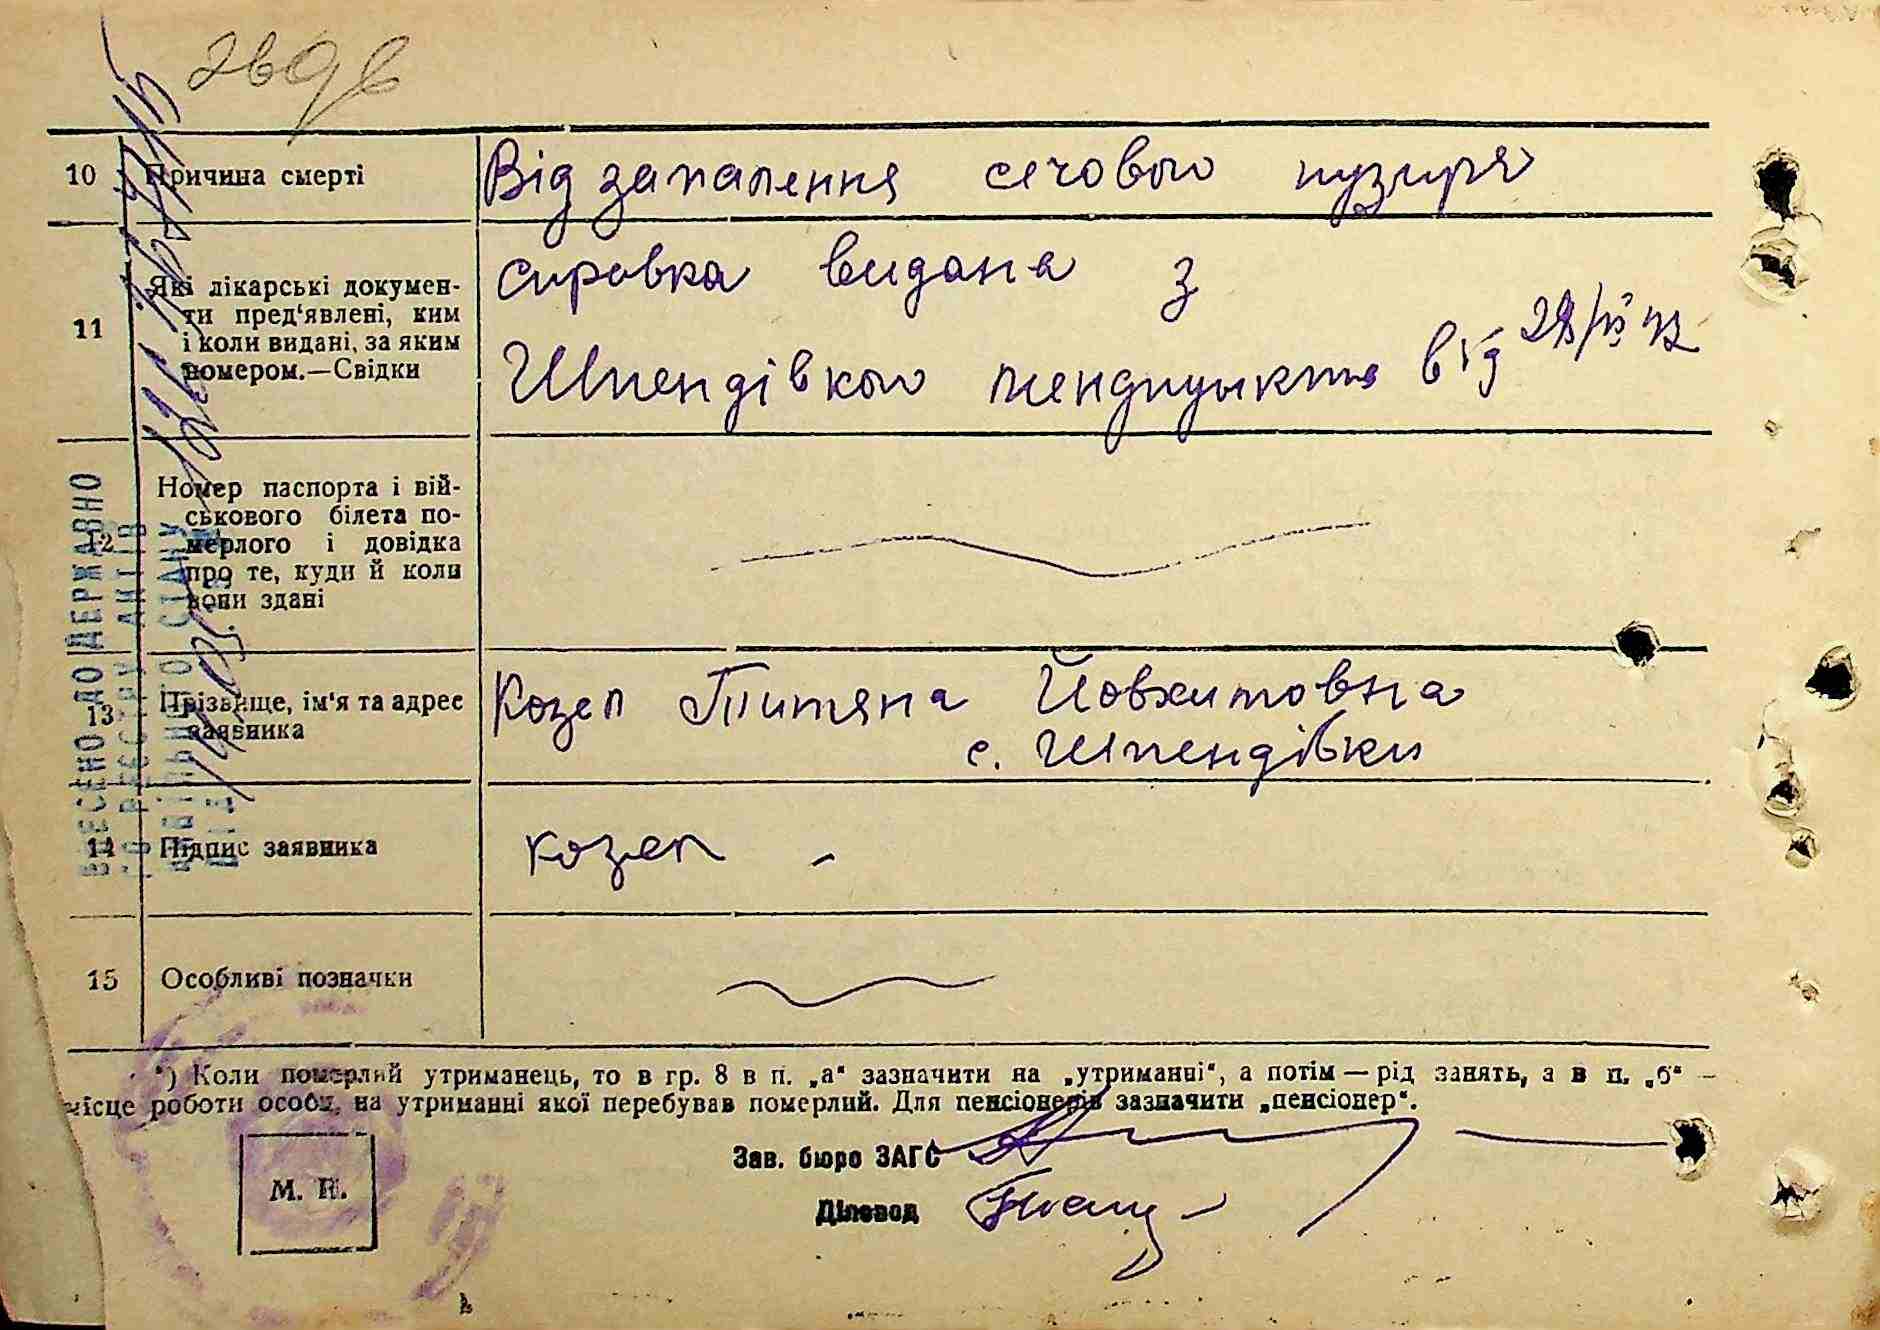 10 Причина смерті Від запалення сечового пузиря
11 Які лікарські докумен-
ти пред'явлені, ким
і коли видані, за яким
номером.—Свідки
справка видана з
Шпендівкого медпункта від 28/
12 Номер паспорта і вій-
ськового білета по-
мерлого і довідка
про те, куди й коли
вони здані
13 Прізвище, ім'я та адрес
заявника
Козел Титяна Йовхимовна
с. Шпендівки
14 Підпис заявника козел
15 Особливі позначки
*) Коли померлий утриманець, то в гр. 8 в п. „а" зазначити на „утриманні", а потім — рід занять, а в п. „б" —
місце роботи особи, на утриманні якої перебував померлий. Для пенсіонерів зазначити „пенсіонер".
Зав. бюро ЗАГС
Діловод
М. П.
ВНЕСЕНО ДО ДЕРЖАВНО
ГО РЕЄСТРУ АКТІВ
ЦИВІЛЬНОГО СТАНУ